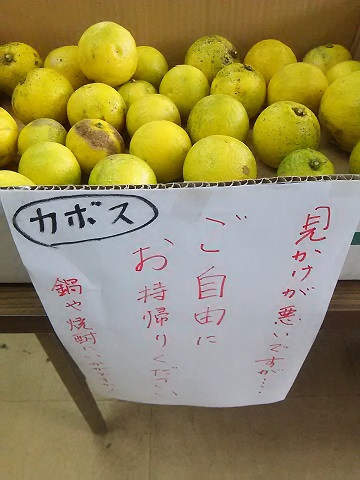 カボス
見かけが悪いですが…
ご自由に
お持帰りください
鍋や焼酎にいかがですか